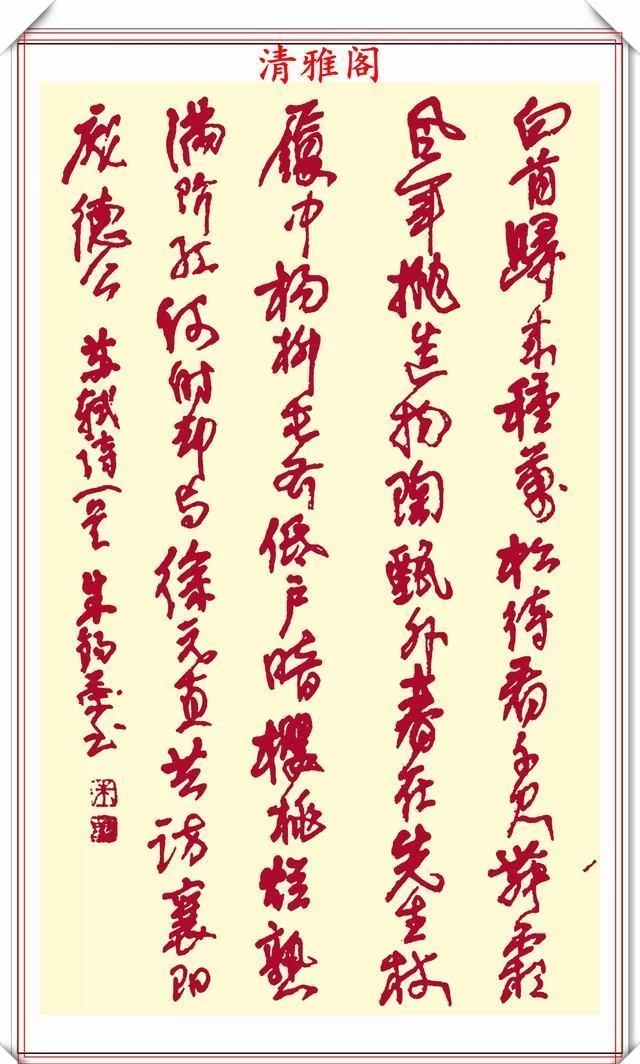 清雅阁
白首歸来種萬松待看千尺舞霜
风年抛造物陶甄外春在先生杖
屦中杨柳长齐低户暗樱桃烂熟
满阶红何时却与徐元直共访襄阳
庞德公 苏轼诗一首 朱锡书